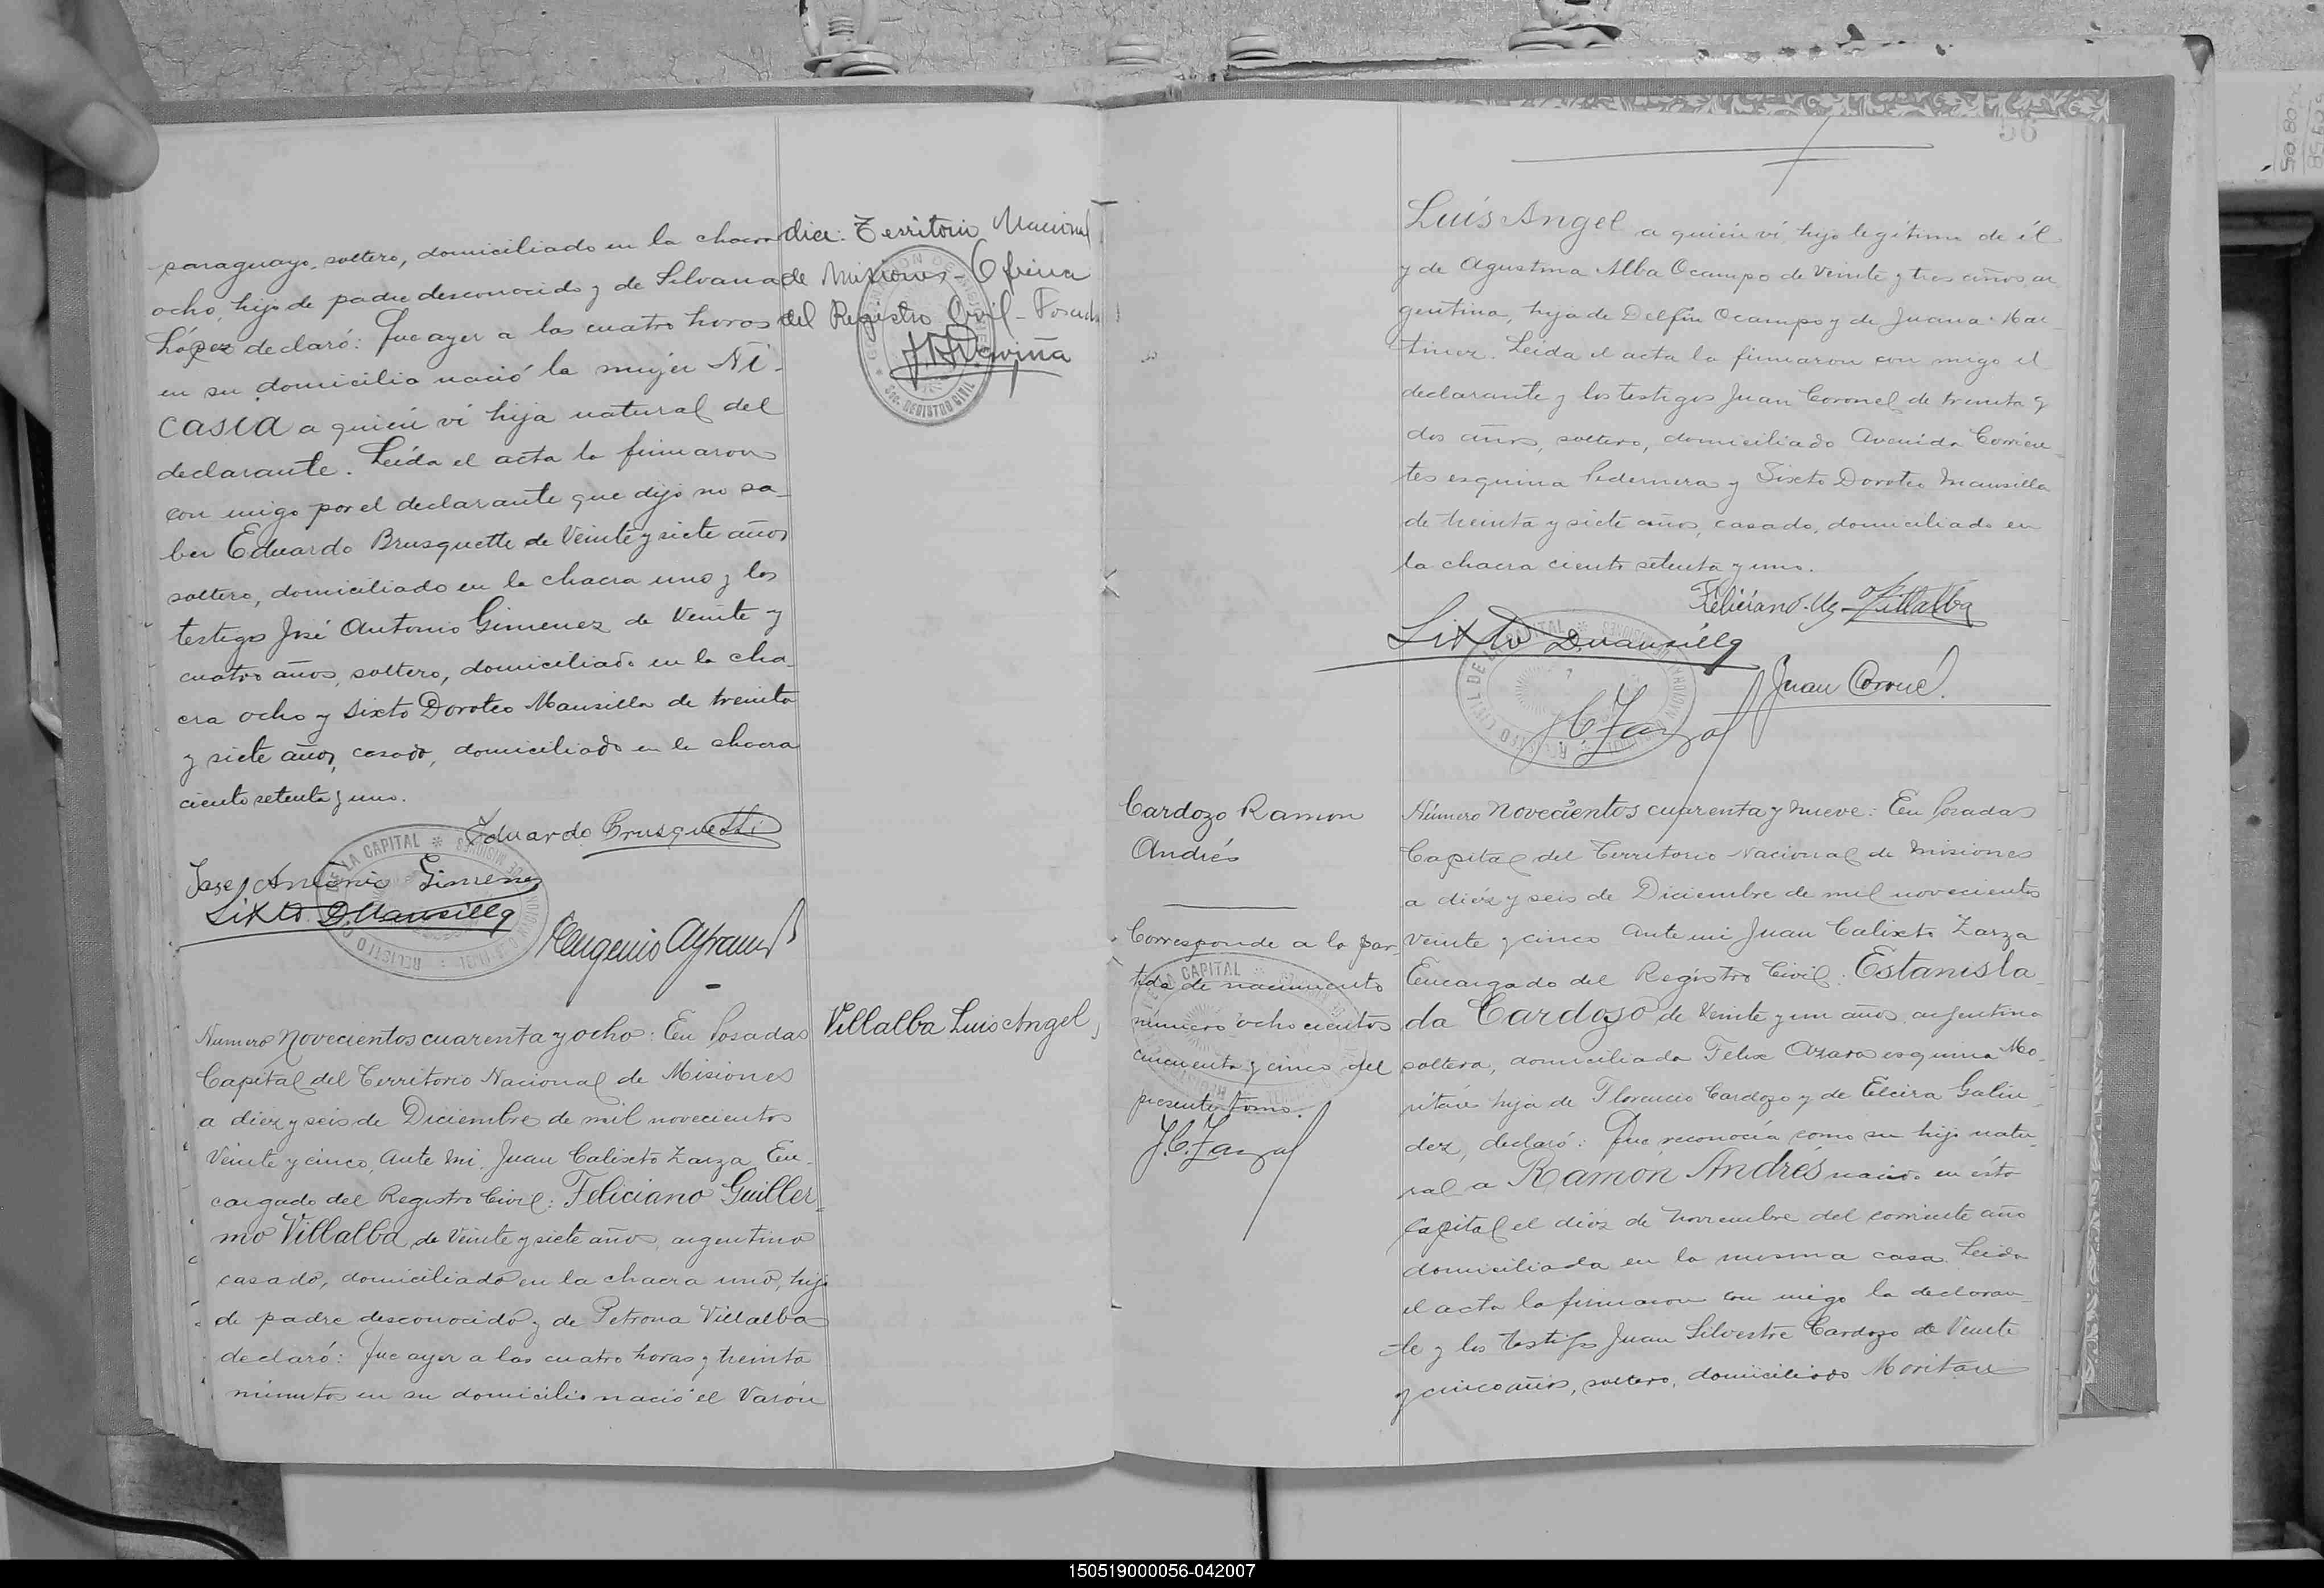 paraguayo, soltero, domiciliado en la chacra
ocho, hijo de padre desconocido y de Silvana
López declaró: Que ayer a las cuatro horas
en su domicilio nació la mujer Ni-
casia a quién ví hija natural del
declarante. Leída el acta la firmaron
con migo por el declarante que dijo no sa-
ber Eduardo Brusquette de Veinte y siete años
soltero, domiciliado en la chacra uno y los
testigos José Antonio Gimenez de Veinte y
cuatro años, soltero, domiciliado en la cha-
cra ocho y Sixto Doroteo Mansilla de treinta
y siete años, casado, domiciliado en la chacra
ciento setenta y uno.
Eduardo Brusquetti
Jose Antonio Gimenez
Sixto D. Mansilla
dice: Territorio Nacional
de Misiones - Oficina
del Registro Civil - Posadas
SEC. REGISTRO CIVIL
Número Novecientos cuarenta y ocho: En Posadas
Capital del Territorio Nacional de Misiones
a diez y seis de Diciembre de mil novecientos
Veinte y cinco, Ante mi, Juan Calixto Zarza, En-
cargado del Registro Civil: Feliciano Guiller-
mo Villalba, de Veinte y siete años, argentino
casado, domiciliado en la chacra uno, hijo
de padre desconocido y de Petrona Villalba
declaró: Que ayer a las cuatro horas y treinta
minutos en su domicilio nació el Varón
Villalba Luis Angel
56
Luís Angel a quién ví, hijo legítimo de él
y de Agustina Alba Ocampo de Veinte y tres años, ar-
gentina, hija de Delfín Ocampo y de Juana Mar-
tinez. Leída el acta la firmaron con migo el
declarante y los testigos Juan Coronel de treinta y
dos años, soltero, domiciliado Avenida Corrien-
tes esquina Pedernera y Sixto Doroteo Mansilla
de treinta y siete años, casado, domiciliado en
la chacra ciento setenta y uno.
Feliciano G. Villalba
Sixto D. Mansilla
Juan Coronel
J. C. Zarza
Cardozo Ramon
Andrés
Corresponde a la par-
tida de nacimiento
número ochocientos
cincuenta y cinco del
presente tomo.
J. C. Zarza
Número Novecientos cuarenta y nueve: En Posadas
Capital del Territorio Nacional de Misiones
a diéz y seis de Diciembre de mil novecientos
veinte y cinco Ante mi Juan Calixto Zarza
Encargado del Registro Civil: Estanisla-
da Cardozo de Veinte y un años, argentina
soltera, domiciliada Felix Azara esquina Mo-
ritán hija de Florencio Cardozo y de Elcira Galin-
dez, declaró: Que reconocía como su hijo natu-
ral a Ramón Andrés nacido en ésta
Capital el diez de Noviembre del corriente año
domiciliada en la misma casa. Leida
el acta la firmaron con migo la declaran-
te y los testigos Juan Silvestre Cardozo de Veinte
y cinco años, soltero, domiciliado Moritan
150519000056-042007